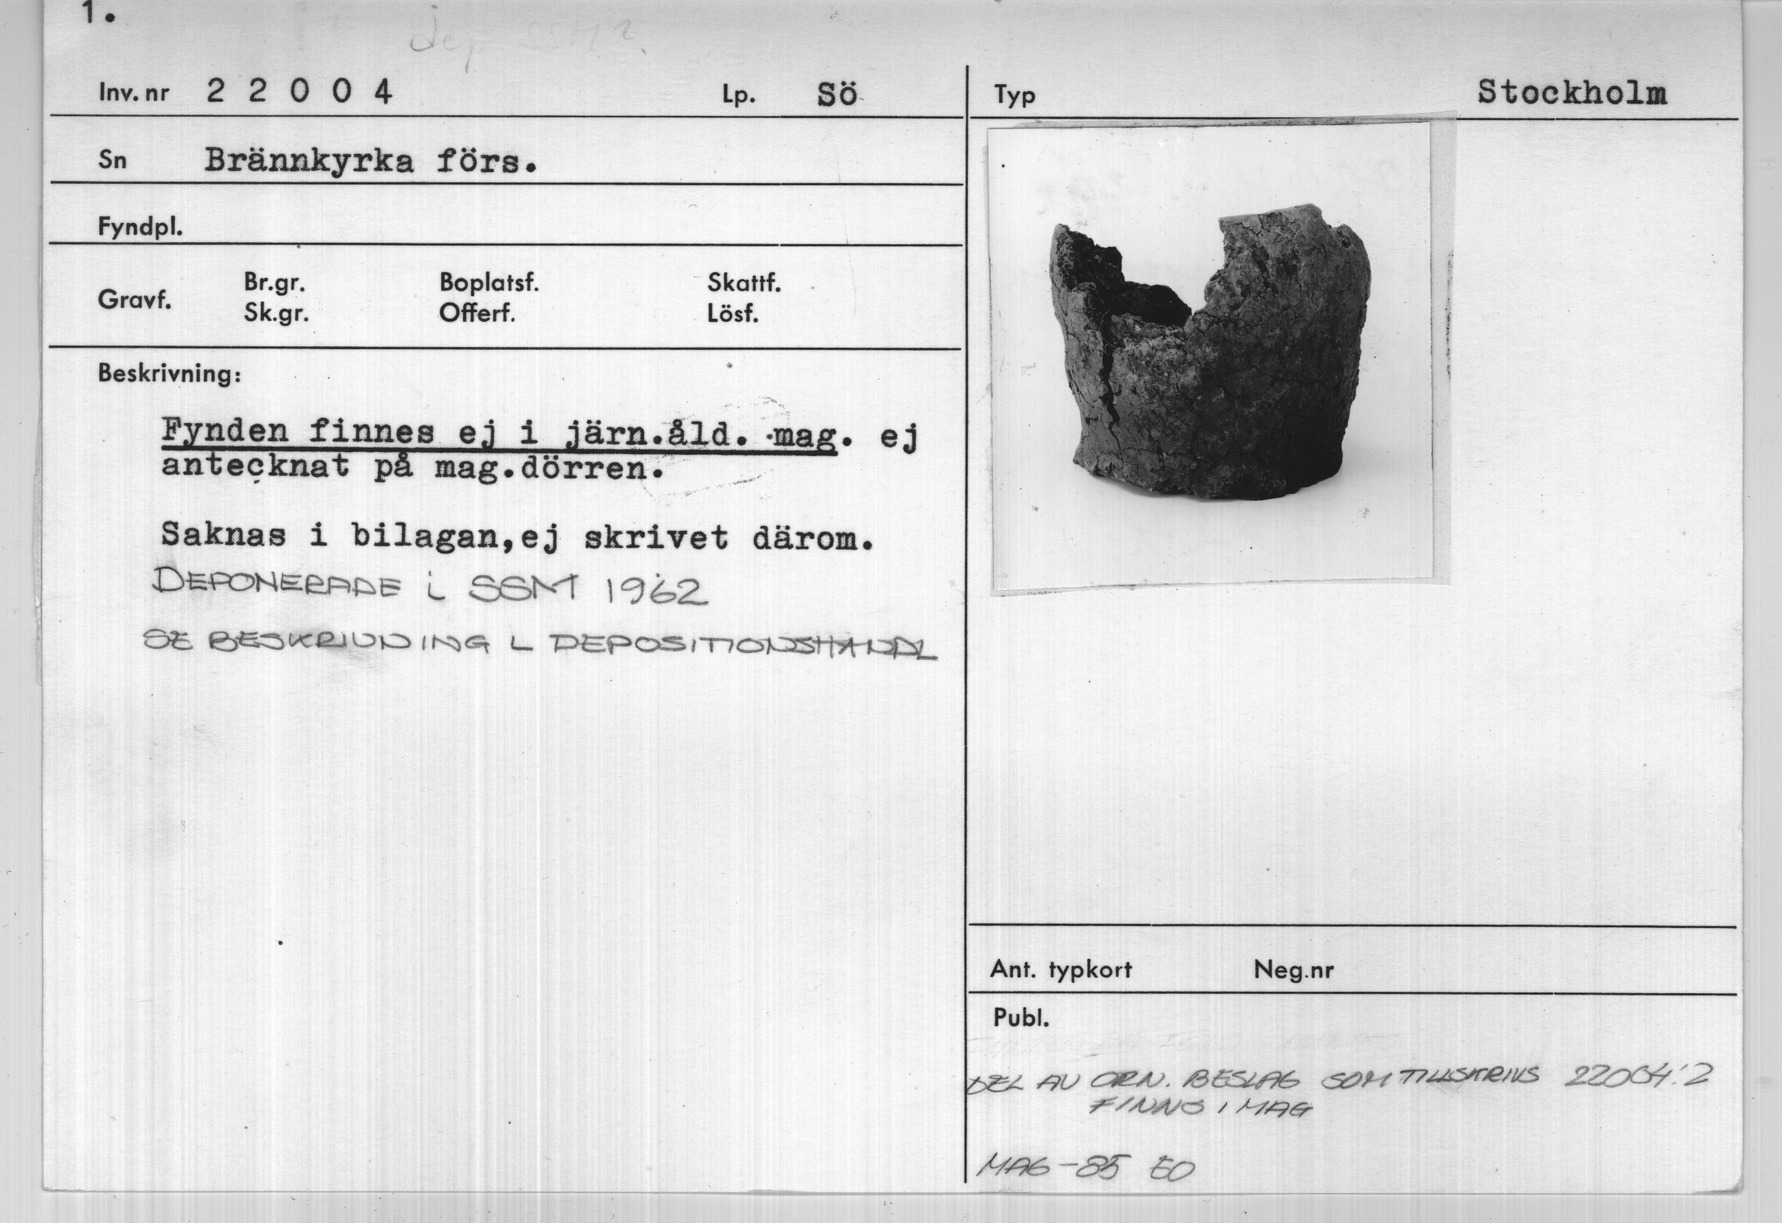 1.
dep SSM
Inv. nr 2 2 0 0 4 Lp. Sö
Sn Brännkyrka förs.
Fyndpl.
Gravf. Br.gr. Boplatsf. Skattf.
Sk.gr. Offerf. Lösf.
Beskrivning:
Fynden finnes ej i järn.åld. mag. ej
antecknat på mag.dörren.
Saknas i bilagan,ej skrivet därom.
DEPONERADE i SSM 1962
SE BESKRIVNING I DEPOSITIONSHANDL
Typ Stockholm
Ant. typkort Neg.nr
Publ.
DEL AV ORN. BESLAG SOM TILLSKRIVS 22004:2
FINNS I MAG
MAG-85 EO